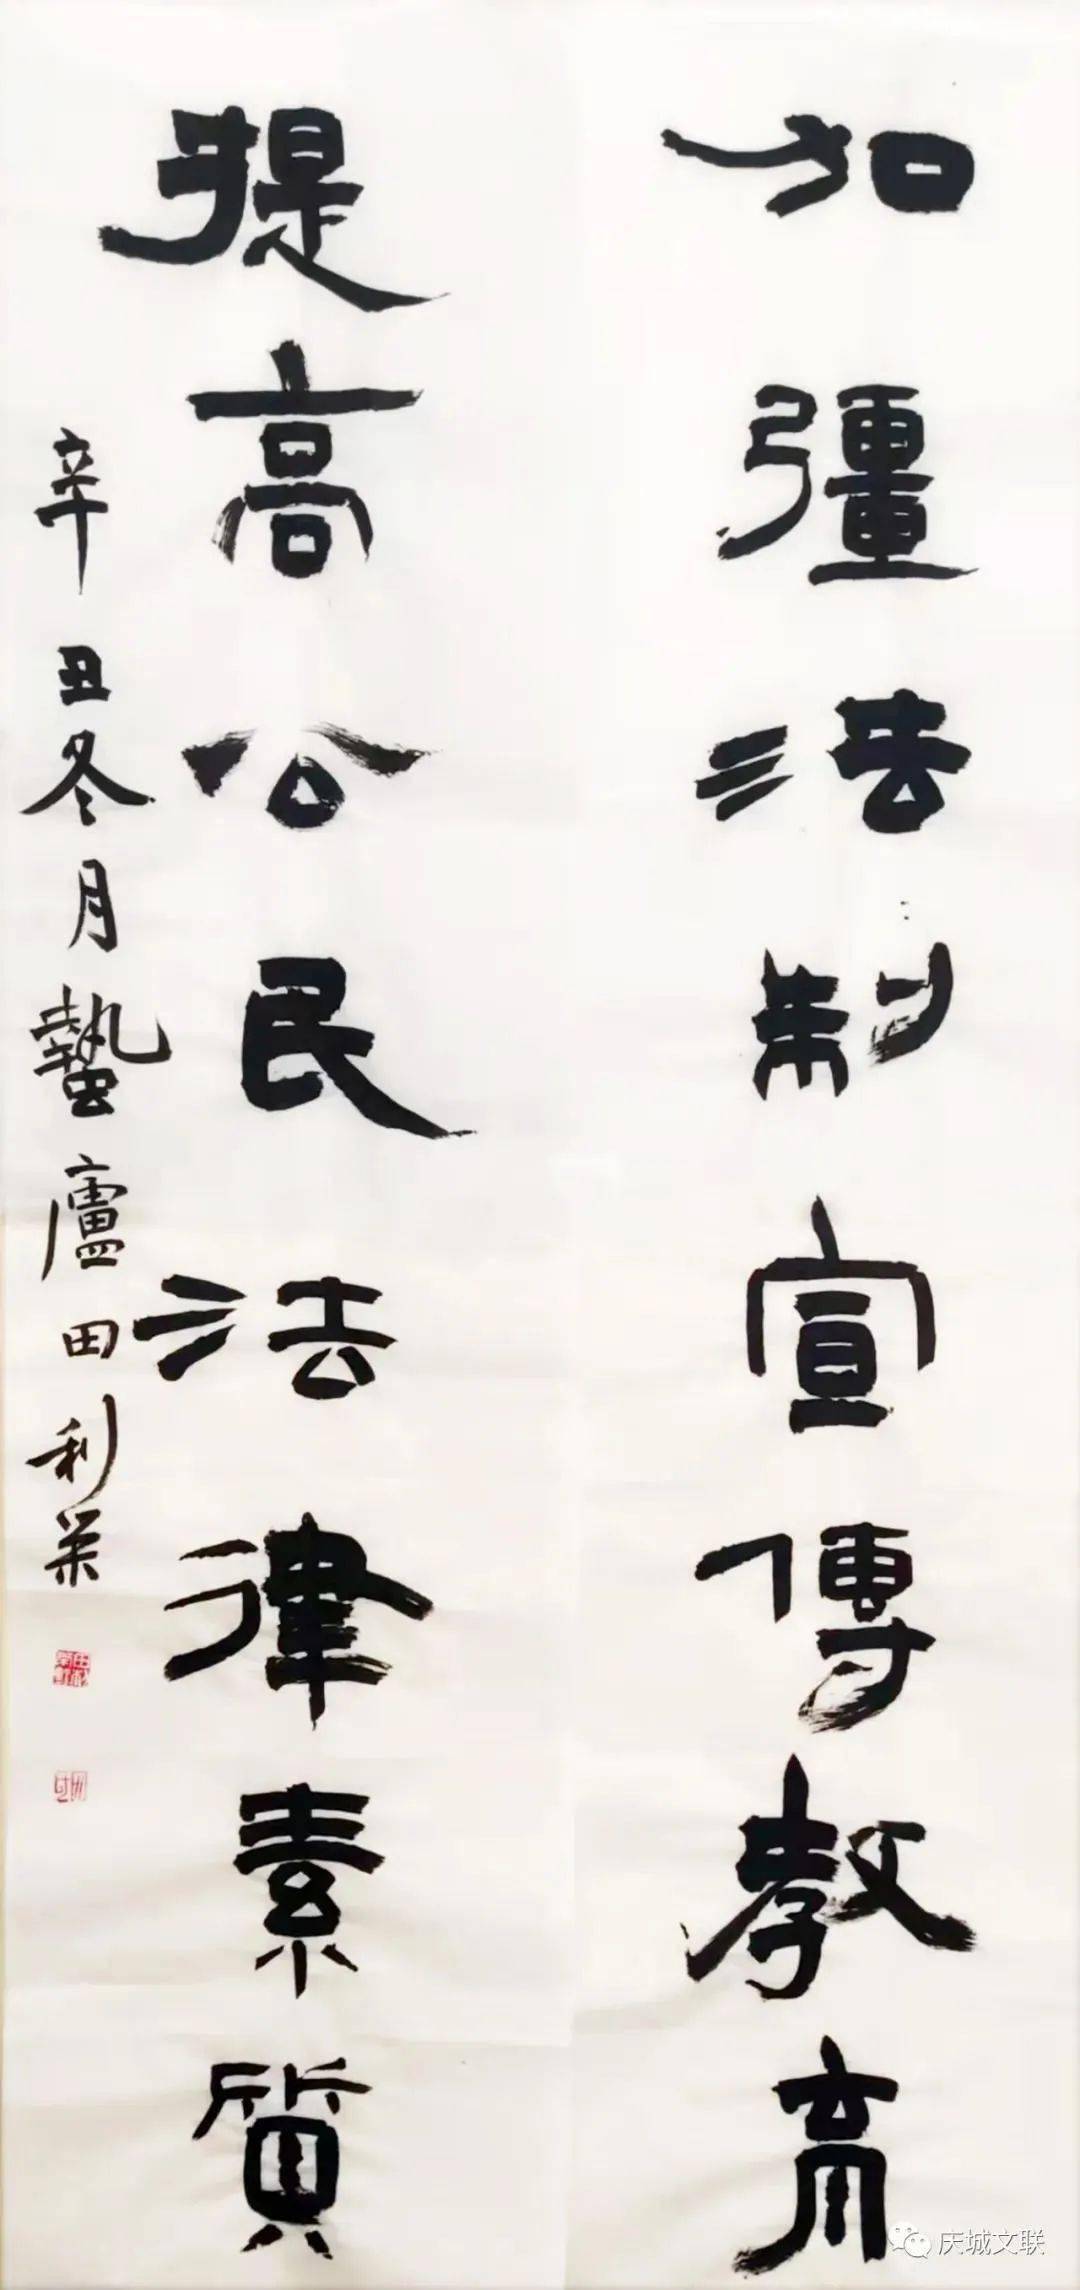 加彊法制宣傳教育
提高公民法律素質
辛丑冬月蟄廬田利榮
庆城文联